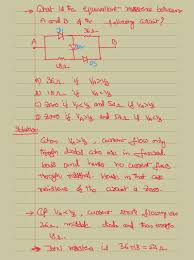 → What is the equivalent resistance between
A and B of the following circuit?
D1
36Ω
A
B
18Ω
D3
a) 36Ω if VA > VB
b) 18Ω if VA < VB
c) Zero if VA > VB and 54Ω if VA < VB
d) Zero if VA < VB and 54Ω if VA > VB
Solution
When VA > VB, current flow only
through diodes are in forward
bias and hence no current flow
through resistors. Hence in that case
resistance of the circuit is zero.
→ If VA < VB, current start flowing
36Ω, middle diode and then
18Ω.
→ Total resistance is 36+18 = 54Ω